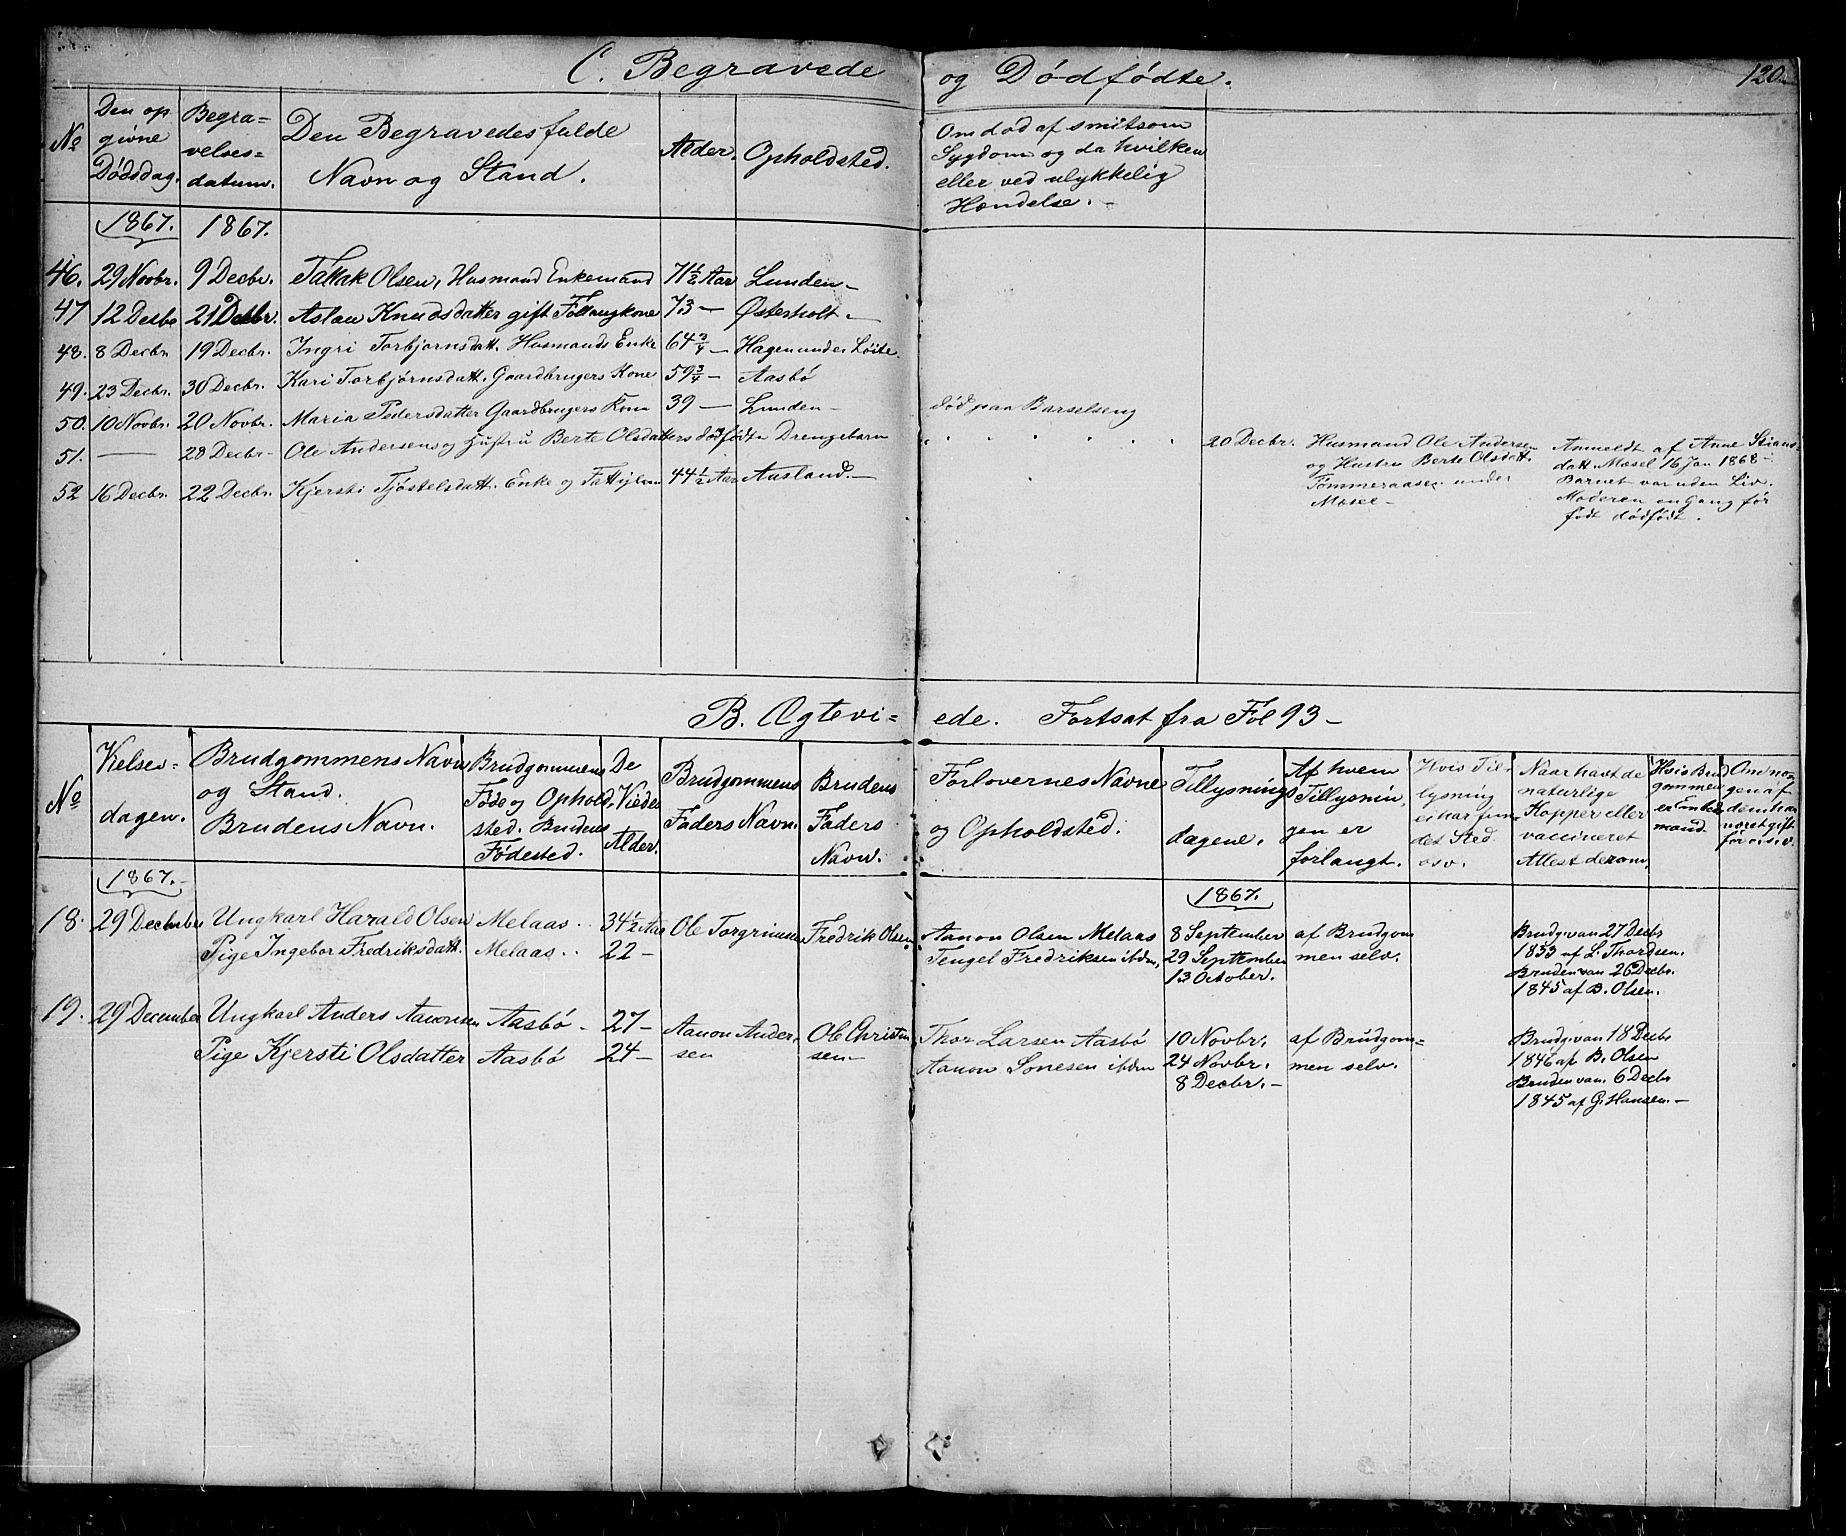 C. Begravede og Dødfødte.
120.
No
Den op givne Dødsdag.
Begra= velses= datum.
Den Begravedes fulde Navn og Stand.
Alder.
Opholdsted.
Om død af smitsom Sygdom og da hvilken eller ved ulykkelig Hændelse. -
1867. 1867.
46. 29 Novbr. 9 Decbr. Tallak Olsen, Husmand Enkemand 71½ Aar Lunden -
47 12 Decbr 21 Decbr. Aslau Knudsdatter gift 73 - Østerholt -
48. 8 Decbr. 19 Decbr. Ingri Torbjørnsdatt. Husmands Enke 64¾ - Hagen under Løite.
49. 23 Decbr. 30 Decbr. Kari Torbjørnsdatt. Gaardbrugers Kone 59¾ - Aasbø
50. 10 Novbr. 20 Novbr. Maria Pedersdatter Gaardbrugers Kone 39 - Lunden - død paa Barselseng
51. — 28 Decbr - Ole Andersens og Hustru Berte Olsdatters dødfødte Drengebarn
20 Decbr. Husmand Ole Andersen
og Hustru Berte Olsdatt.
Tømmeraasen under
Mosel -
Anmeldt af Anne Stians-
datt. Mosel 16 Jan 1868 -
Barnet var uden Liv.
Moderen en Gang før
født dødfødt.
52 16 Decbr. 22 Decbr. Kjersti Tjøstelsdatt. Enke og 44½ Aar Ausland. -
B. Ægtevi= ede. Fortsat fra Fol 93 -
No
Vielses= dagen.
Brudgommens Navn og Stand. Brudens Navn.
Brudgommens Føde og Ophold sted. Brudens Fødested.
De Viedes Alder.
Brudgommens Faders Navn.
Brudens Faders Navn.
Forlovernes Navne og Opholdsted.
Tillysnings dagene.
Af hvem Tillysnin gen er forlangt.
Hvis Til= lysning ei har fun det Sted osv.
Naar havt de naturlige Kopper eller vaccineret Attest derom.
Hvis Brud gommen er Enke mand.
Om no gen af dem har været gift før o. s. v.
1867. -
1867.
18. 29 December Ungkarl Harald Olsen Melaas .. 34½ Aar Ole Torgrimsen Fredrik Olsen
Pige Ingebor Fredriksdatt. Melaas .. 22 -
Aanon Olsen Melaas 8 September af Brudgom
Tengel Fredriksen ibdm, 29 September men selv.
13 October.
Brudg. van 27 Decbr
1833 af L. Thordsen.
Bruden van 26 Decbr.
1845 af B. Olsen.
19. 29 December Ungkarl Anders Aanonsen Aasbø - 27 - Aanon Ander- Ole Christen
Pige Kjersti Olsdatter Aasbø 24 - sen sen -
Thor Larsen Aasbø 10 Novbr. af Brudgom=
Aanon Sonesen ibdm 24 Novbr. men selv.
8 Decbr. -
Brudg. van 18 Decbr
1846 af B. Olsen
Bruden van. 6 Decbr
1845 af G. Hansen. -